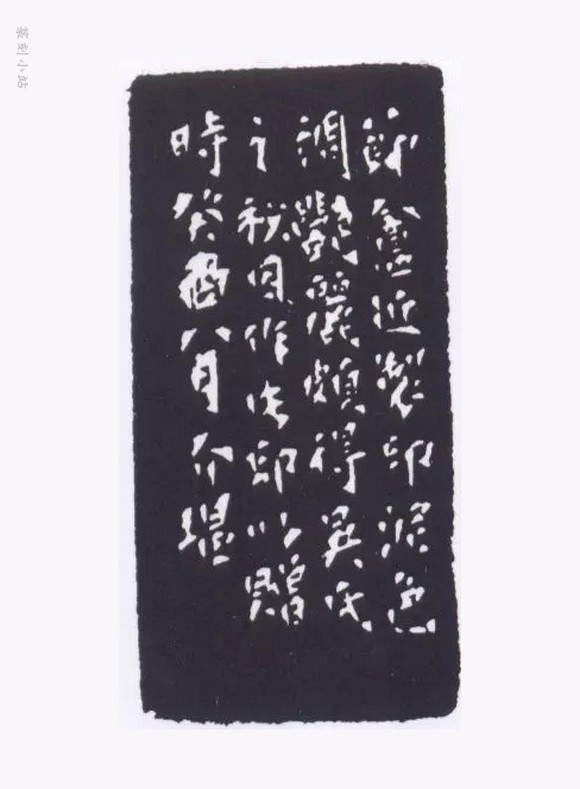 盦近製印泥色
調豔麗頗得吳氏
之秘因作此印以贈
時癸酉八月介堪
篆刻小站